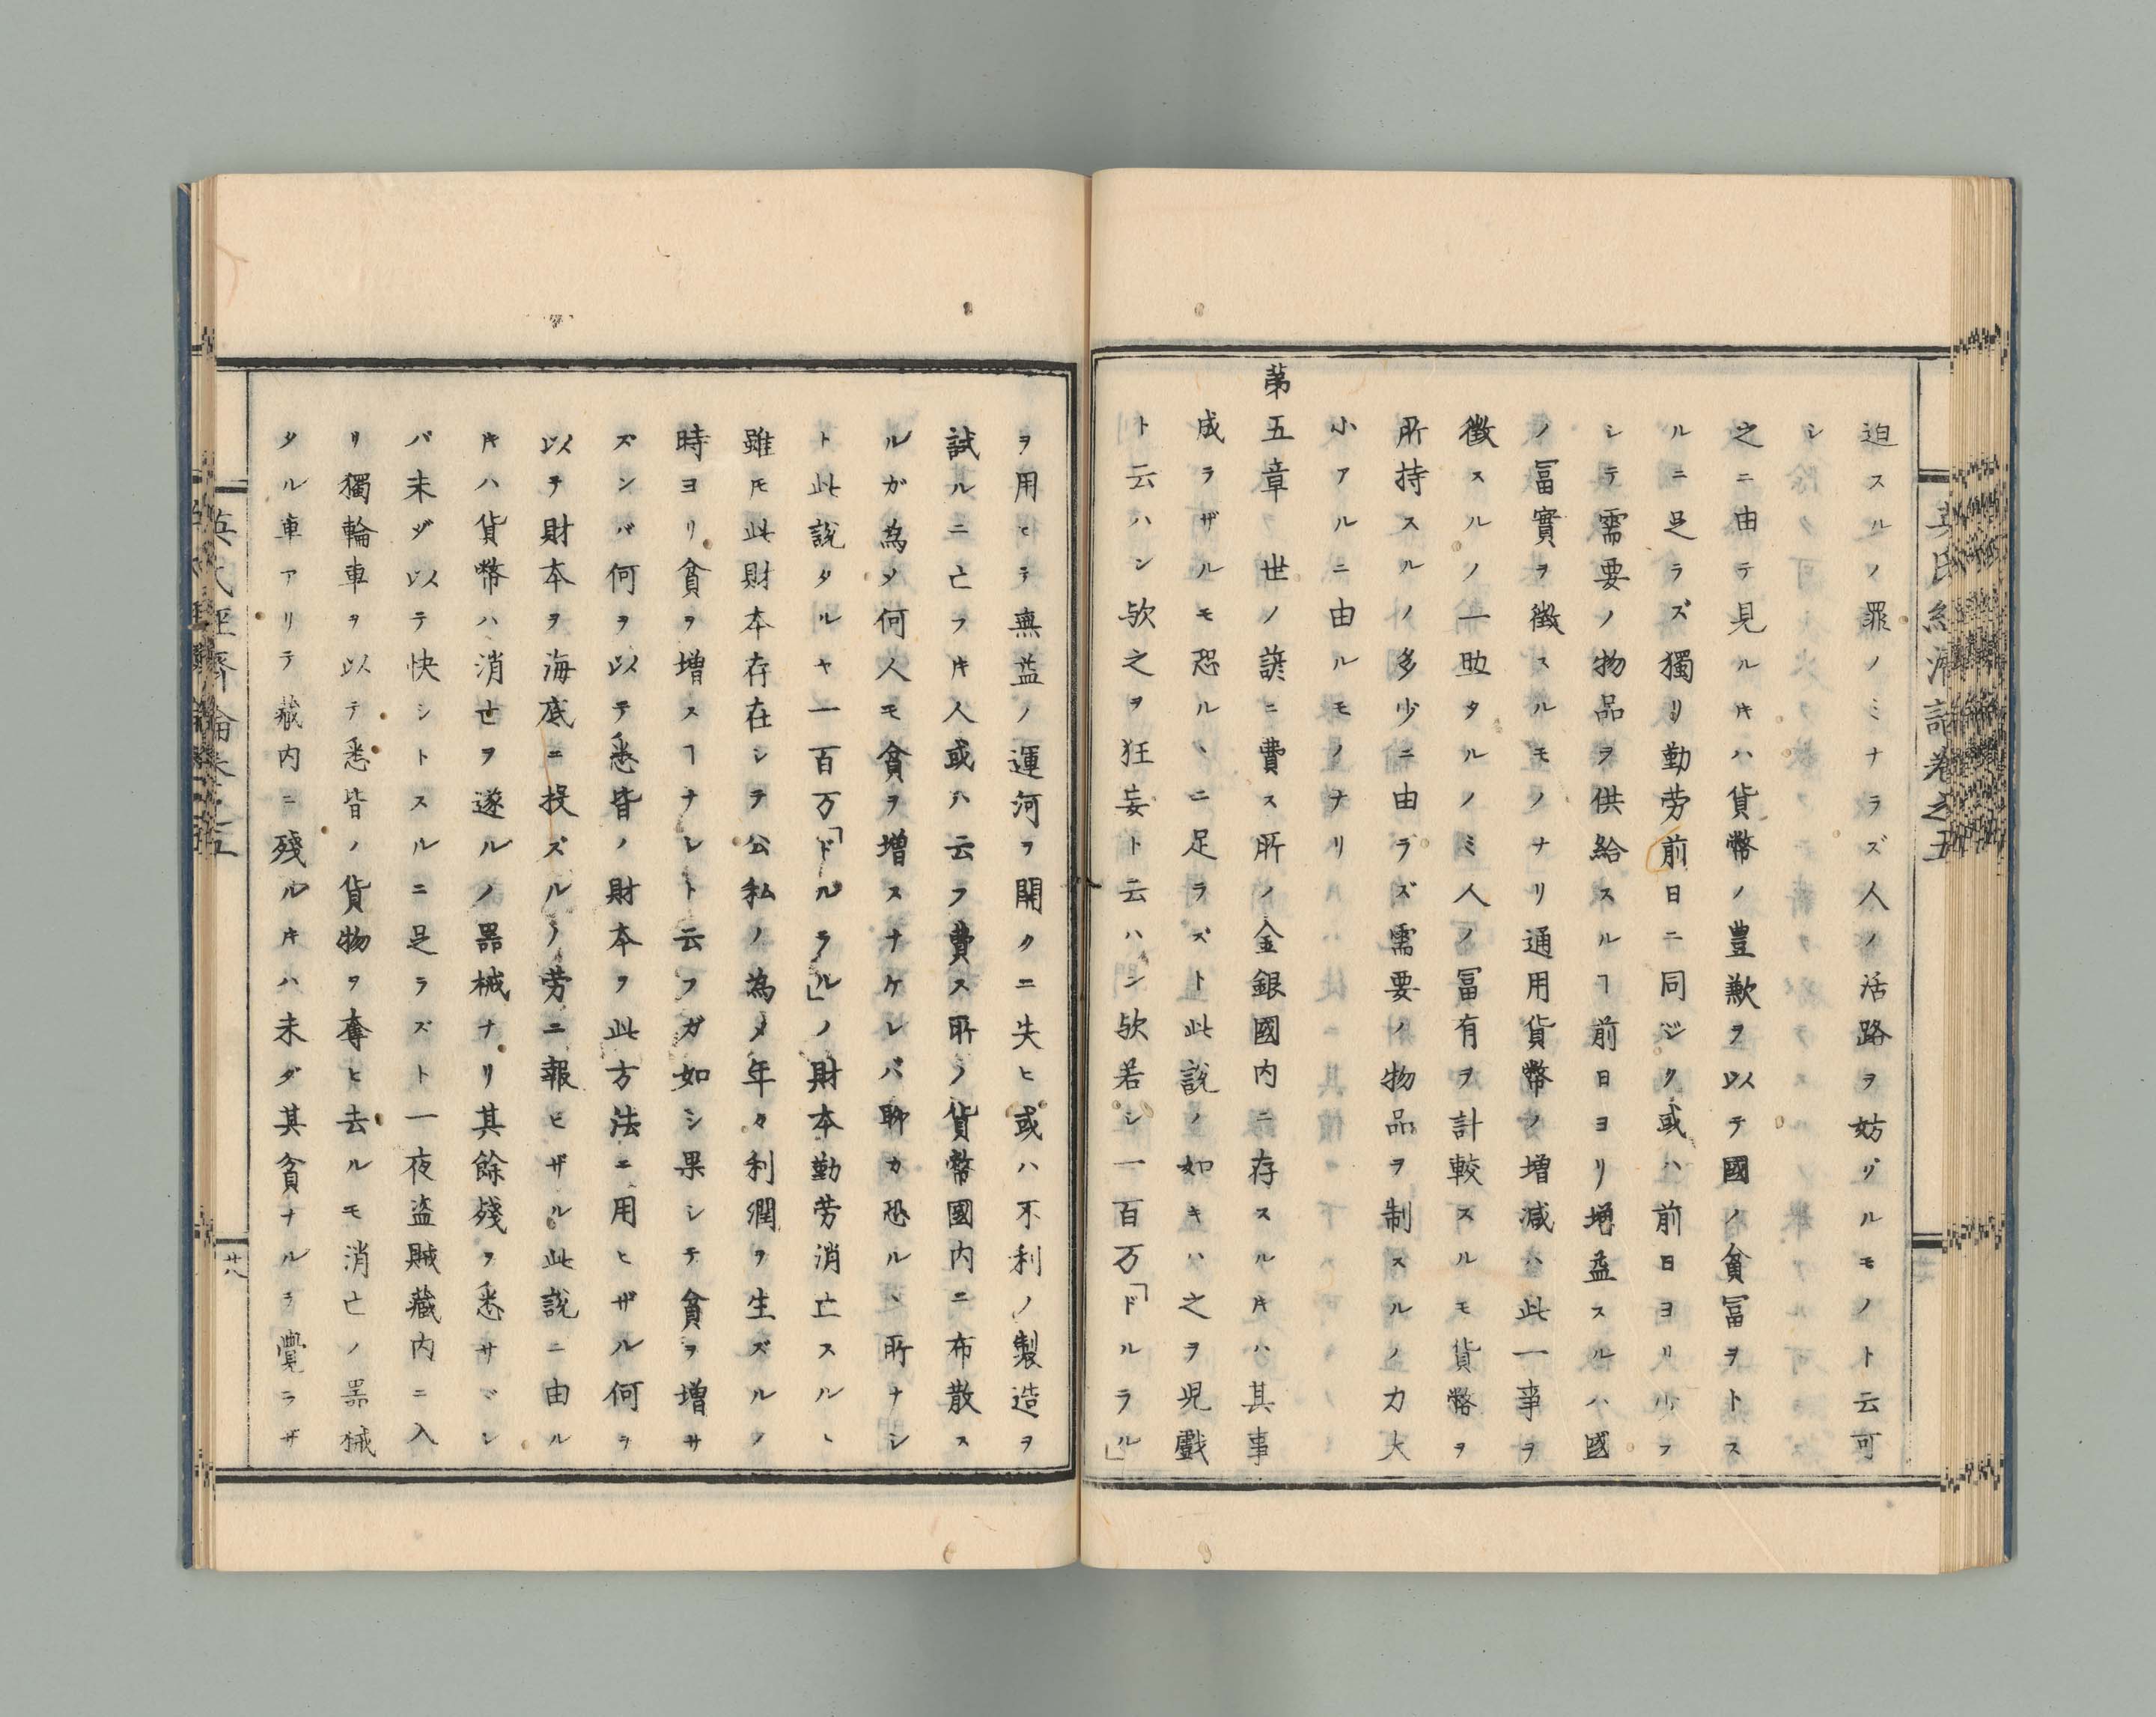 迫スルノ罪ノミナラズ人ノ活路ヲ妨ゲルモノト云可
シ
之ニ由テ見ルキハ貨幣ノ豊歉ヲ以テ國ノ貧冨ヲトス
ルニ足ラズ獨リ勤労前日ニ同ジク或ハ前日ヨリ少フ
シテ需要ノ物品ヲ供給スルヿ前日ヨリ増益スルハ國
ノ冨實ヲ徴スルモノナリ通用貨幣ノ増減ハ此一事ヲ
徴スルノ一助タルノミ人ノ冨有ヲ計較スルモ貨幣ヲ
所持スルノ多少ニ由ラズ需要ノ物品ヲ制スルノ力大
小アルニ由ルモノナリ
第五章 世ノ諺ニ費ス所ノ金銀國内ニ存スルキハ其事
成ラザルモ恐ルヽニ足ラズト此説ノ如キハ之ヲ児戯
ト云ハン欤之ヲ狂妄ト云ハン欤若シ一百万「ドルラル」
ヲ用ヒテ無益ノ運河ヲ開クニ失ヒ或ハ不利ノ製造ヲ
試ルニ亡ヲキ人或ハ云フ費ス所ノ貨幣國内ニ布散ス
ルガ為メ何人モ貧ヲ増スナケレバ聊カ恐ルヽ所ナシ
ト此説タルヤ一百万「ドルラル」ノ財本勤労消亡スルヽ
雖モ此財本存在シテ公私ノ為メ年々利潤ヲ生ズルノ
時ヨリ貧ヲ増スヿナシト云フガ如シ果シテ貧ヲ増サ
ズンバ何ヲ以テ悉皆ノ財本ヲ此方法ニ用ヒザル何ヲ
以テ財本ヲ海底ニ投ズルノ労ニ報ヒザル此説ニ由ル
キハ貨幣ハ消亡ヲ遂ルノ器械ナリ其餘残ヲ悉サヾレ
バ未ダ以テ快シトスルニ足ラズト一夜盗賊藏内ニ入
リ獨輪車ヲ以テ悉皆ノ貨物ヲ奪ヒ去ルモ消亡ノ器械
タル車アリテ藏内ニ殘ルキハ未ダ其貧ナルヲ覺ラザ
英氏經濟論卷之五
廿八